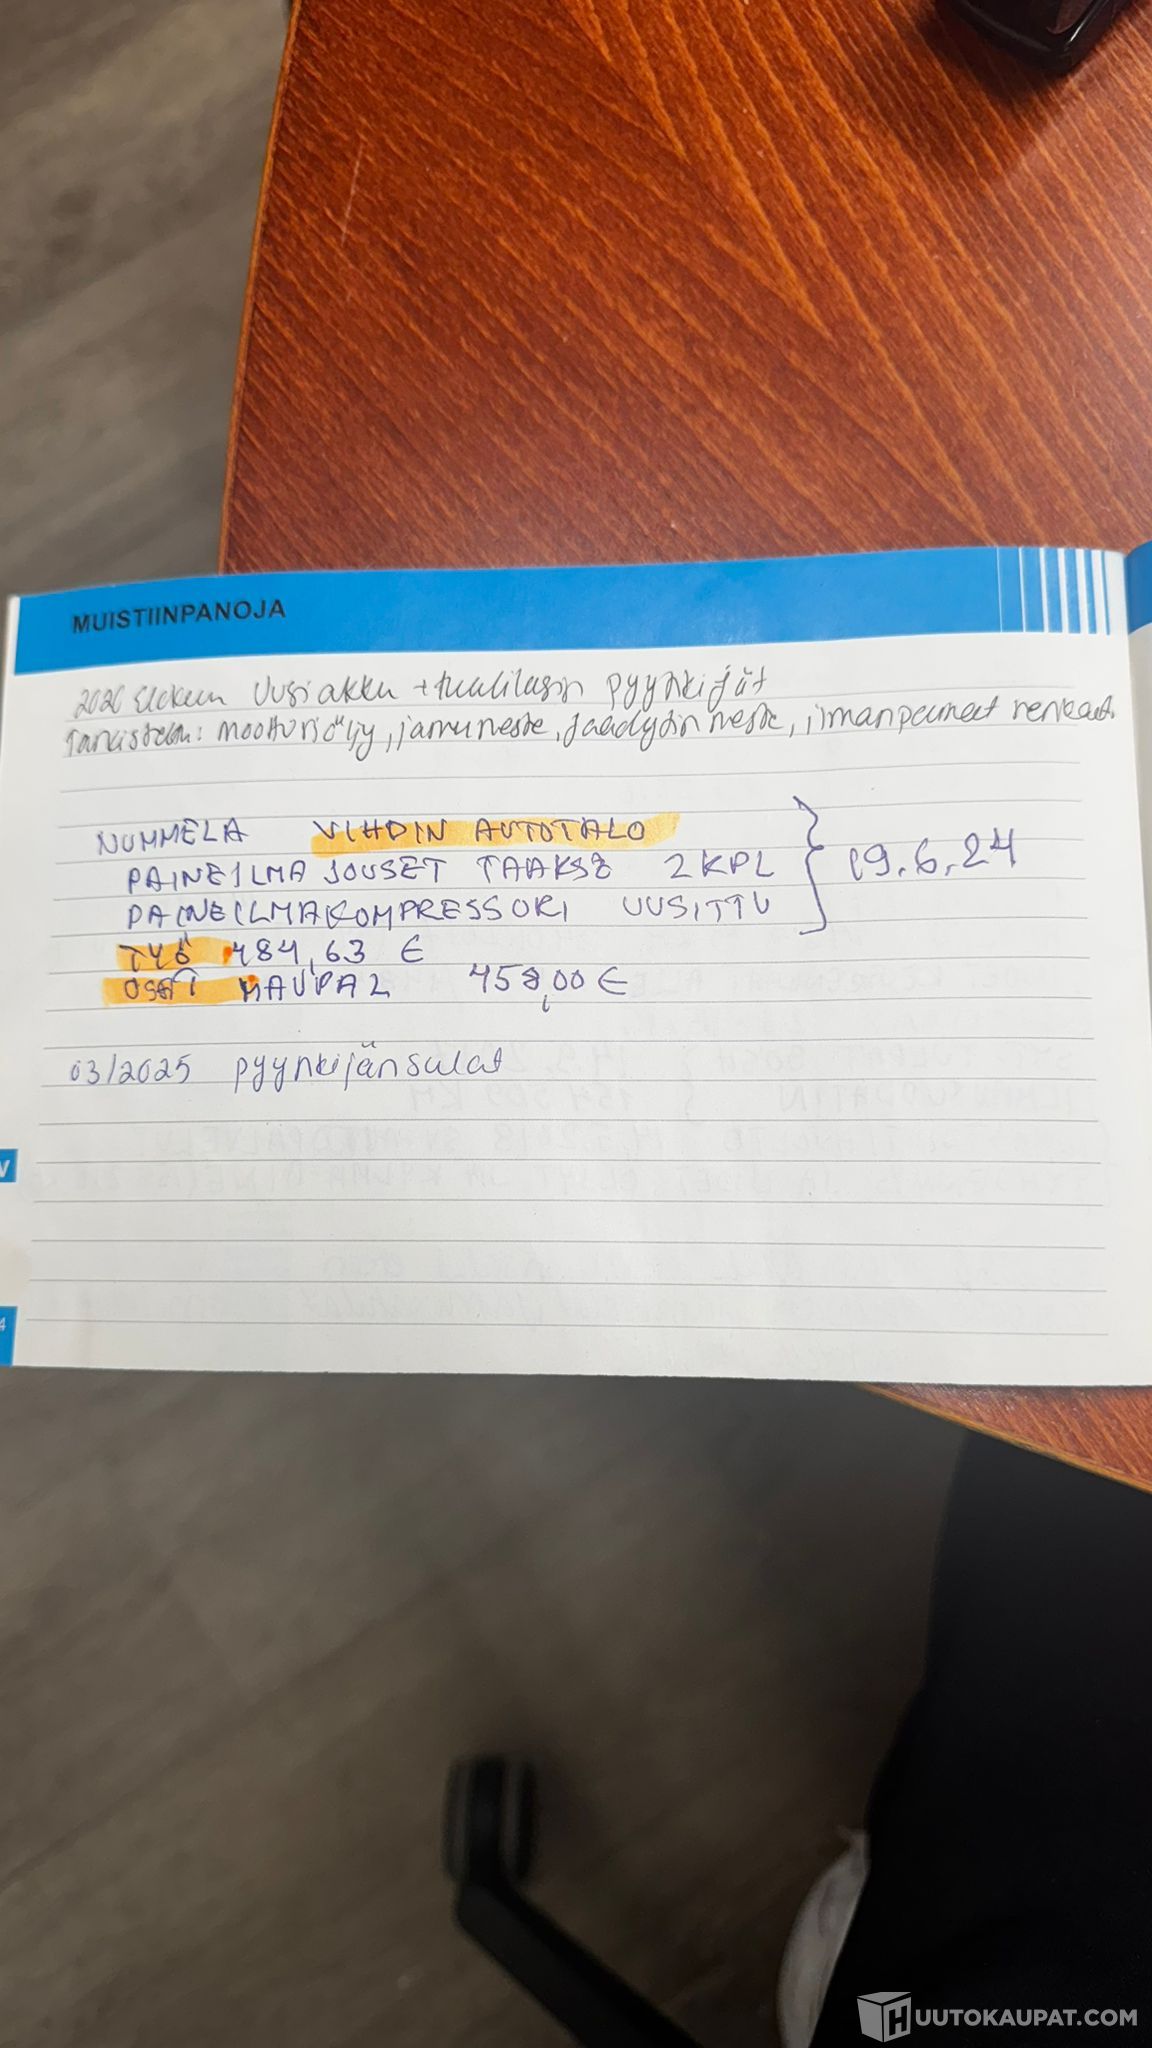 MUISTIINPANOJA
2020 Elokuun Uusi akku + tuulilasin pyyhkijät
Tarkistettu: moottoriöljy, jarruneste, jäähdytin neste, ilmanpaineet renkaat
NUMMELA VIHDIN AUTOTALO
PAINEILMA JOUSET TAAKSE 2 KPL
PAINEILMAKOMPRESSORI UUSITTU
19.6.24
TYÖ 484,63 €
OSAT 458,00 €
03/2025 pyyhkijänsulat
V
4
HUUTOKAUPAT.COM